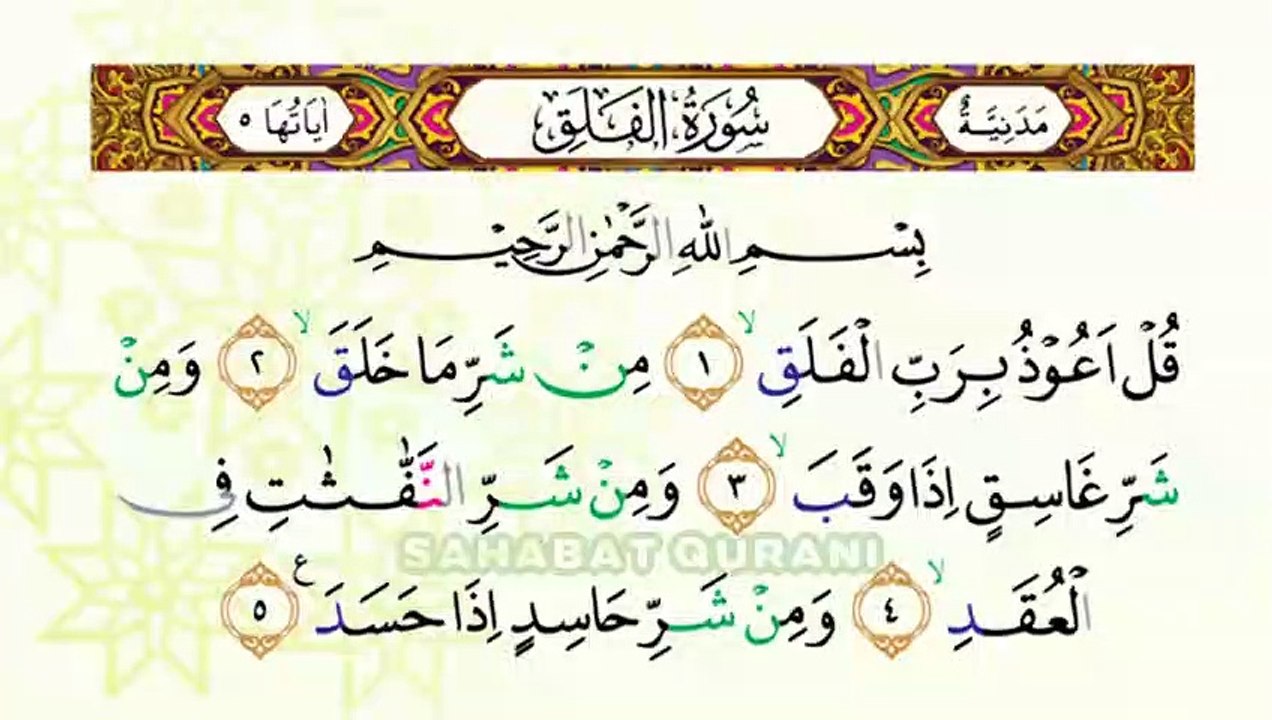 مَدَنِيَّةٌ سُوْرَةُ الْفَلَقِ اٰيَاتُهَا ٥
بِسْمِ اللّٰهِ الرَّحْمٰنِ الرَّحِيْمِ
قُلْ اَعُوْذُ بِرَبِّ الْفَلَقِۙ ١ مِنْ شَرِّ مَا خَلَقَۙ ٢ وَمِنْ
شَرِّ غَاسِقٍ اِذَا وَقَبَۙ ٣ وَمِنْ شَرِّ النَّفّٰثٰتِ فِى
الْعُقَدِۙ ٤ وَمِنْ شَرِّ حَاسِدٍ اِذَا حَسَدَ ࣖ ٥
SAHABAT QURANI